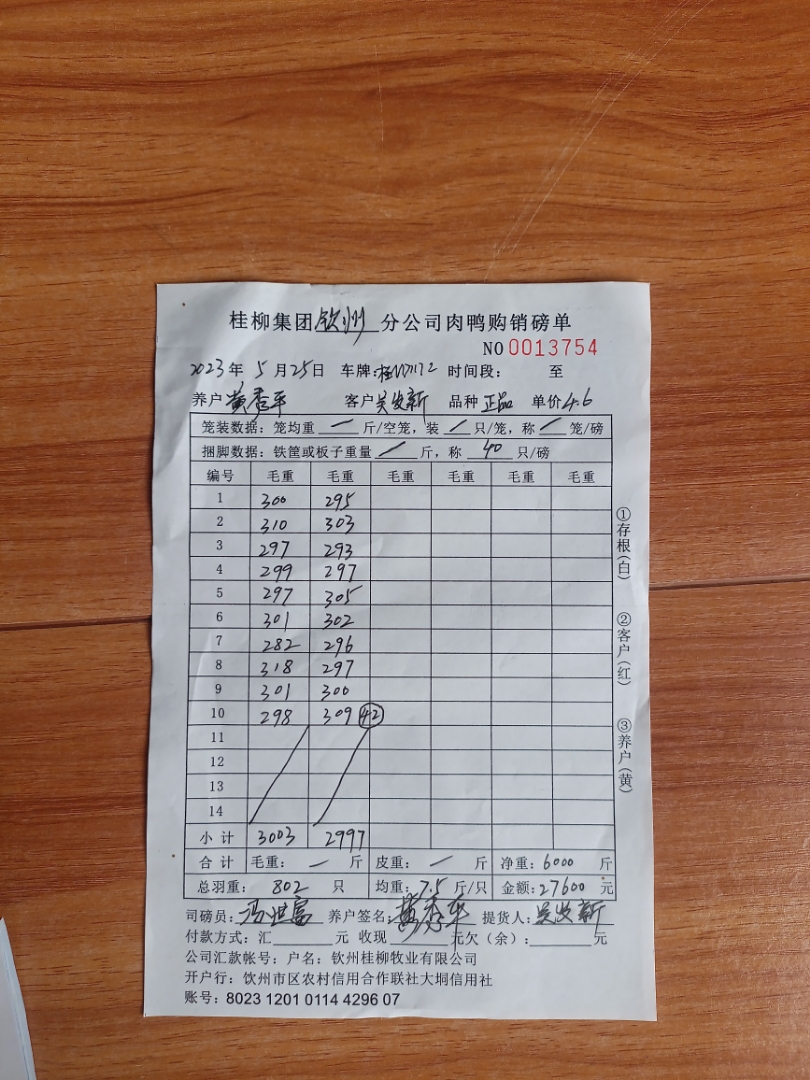 桂柳集团钦州分公司肉鸭购销磅单
NO 0013754
2023年 5月25日 车牌: 时间段: 至
养户 黄秀平 客户 吴发新 品种 正品 单价 4.6
笼装数据: 笼均重 一 斤/空笼, 装 / 只/笼, 称 / 笼/磅
捆脚数据: 铁筐或板子重量 / 斤, 称 40 只/磅
编号 毛重 毛重 毛重 毛重 毛重 毛重
1 300 295
2 310 303
3 297 293
4 299 297
5 297 305
6 301 302
7 282 296
8 318 297
9 301 300
10 298 309 42
11
12
13
14
小计 3003 2997
合计 毛重: 一 斤 皮重: 一 斤 净重: 6000 斤
总羽重: 802 只 均重: 7.5 斤/只 金额: 27600 元
司磅员: 冯世富 养户签名: 黄秀平 提货人: 吴发新
付款方式: 汇 元 收现 元欠(余): 元
公司汇款帐号: 户名: 钦州桂柳牧业有限公司
开户行: 钦州市区农村信用合作联社大垌信用社
账号: 8023 1201 0114 4296 07
①存根(白)
②客户(红)
③养户(黄)